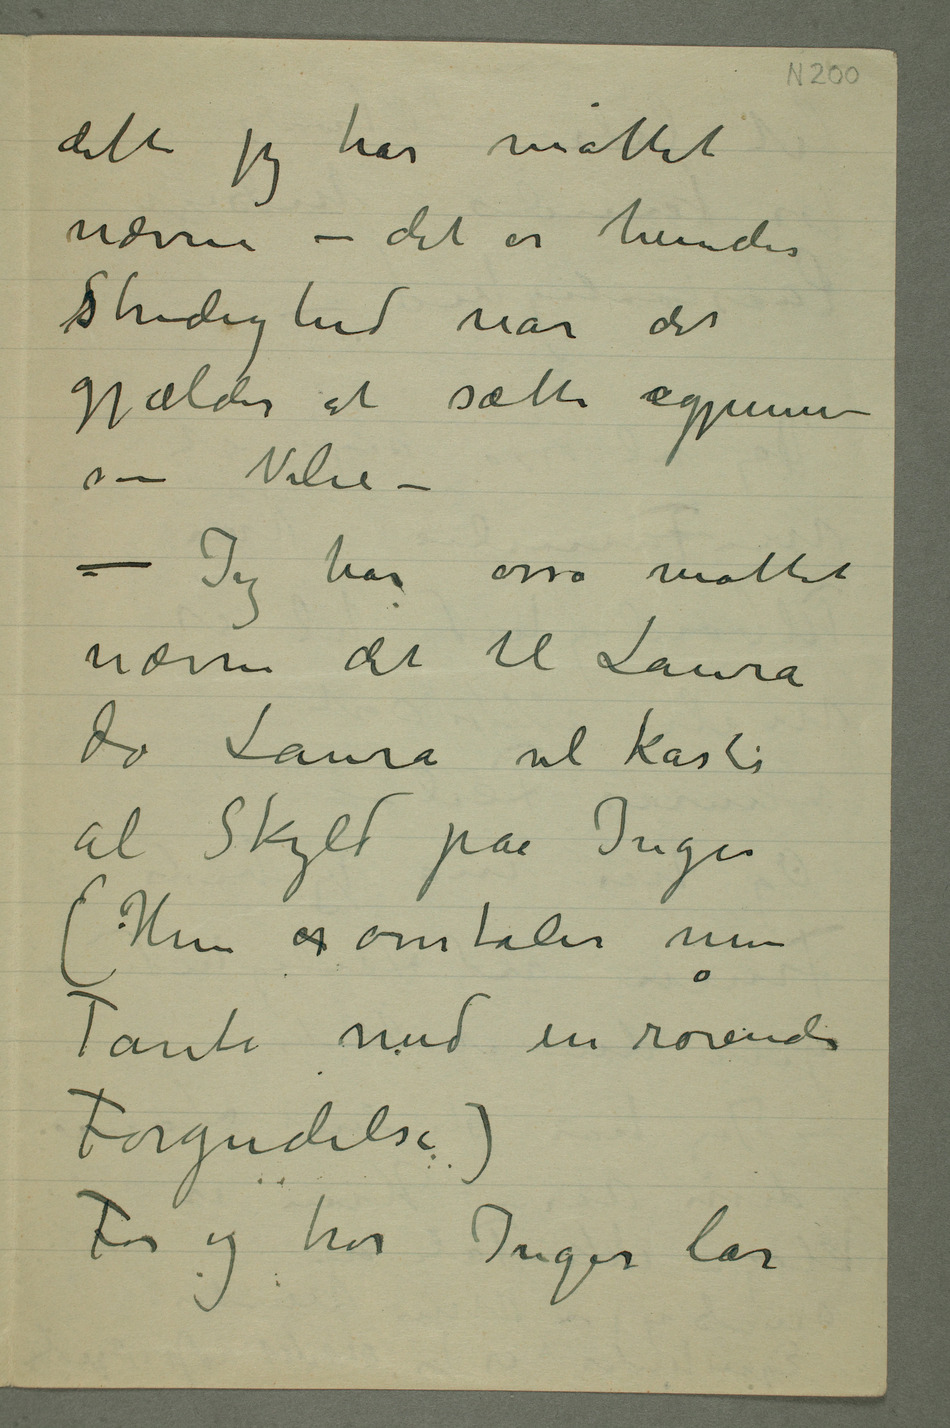 N 200
dette jeg har måttet
nævne – det er hendes
Stridighed når det
gjælder at sætte egjennem
sin Vilie –
– Jeg har osså måttet
nævne det til Laura
da Laura vil kaste
al Skyld paa Inger
(Hun er omtaler min
Tante med en rørende
Forgudelse)
For jeg tror Inger lar